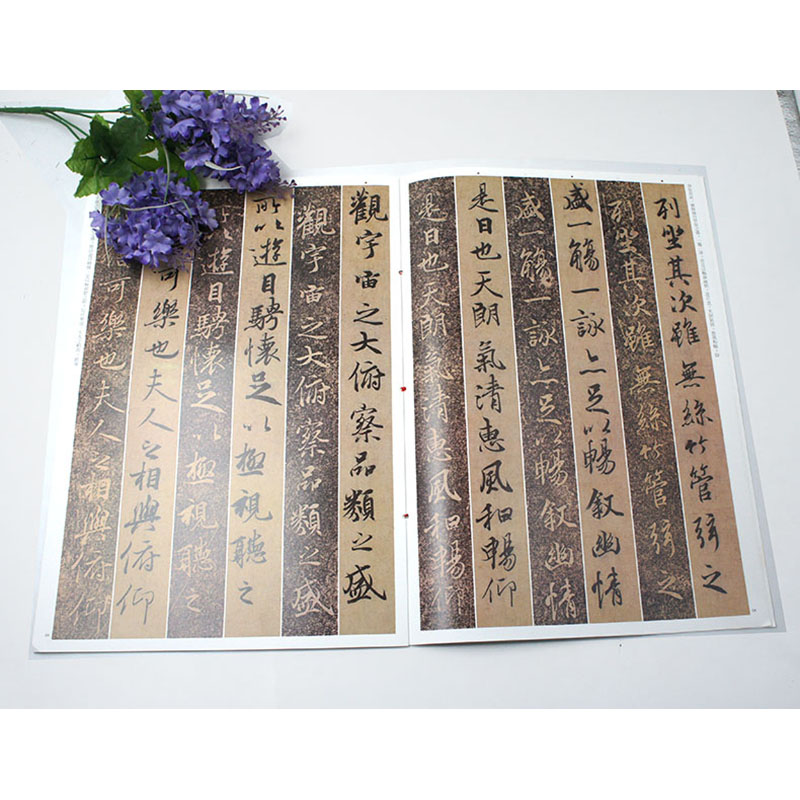 列坐其次雖無絲竹管弦之
列坐其次雖無絲竹管弦之
盛一觴一詠亦足以暢叙幽情
盛一觴一詠亦足以暢叙幽情
是日也天朗氣清惠風和暢仰
是日也天朗氣清惠風和暢仰
觀宇宙之大俯察品類之盛
觀宇宙之大俯察品類之盛
所以遊目騁懷足以極視聽之
以遊目騁懷足以極視聽之
可樂也夫人之相與俯仰
信可樂也夫人之相與俯仰